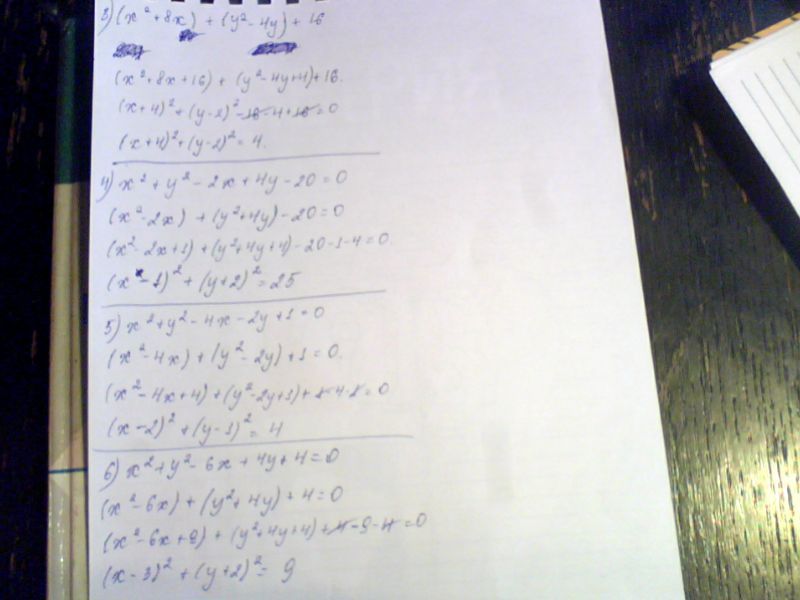 3) (x² + 8x) + (y² - 4y) + 16
(x² + 8x + 16) + (y² - 4y + 4) + 16.
(x + 4)² + (y - 2)² - 16 - 4 + 16 = 0
(x + 4)² + (y - 2)² = 4.
4) x² + y² - 2x + 4y - 20 = 0
(x² - 2x) + (y² + 4y) - 20 = 0
(x² - 2x + 1) + (y² + 4y + 4) - 20 - 1 - 4 = 0.
(x - 1)² + (y + 2)² = 25
5) x² + y² - 4x - 2y + 1 = 0
(x² - 4x) + (y² - 2y) + 1 = 0.
(x² - 4x + 4) + (y² - 2y + 1) + 1 - 4 - 1 = 0
(x - 2)² + (y - 1)² = 4
6) x² + y² - 6x + 4y + 4 = 0
(x² - 6x) + (y² + 4y) + 4 = 0
(x² - 6x + 9) + (y² + 4y + 4) + 4 - 9 - 4 = 0
(x - 3)² + (y + 2)² = 9